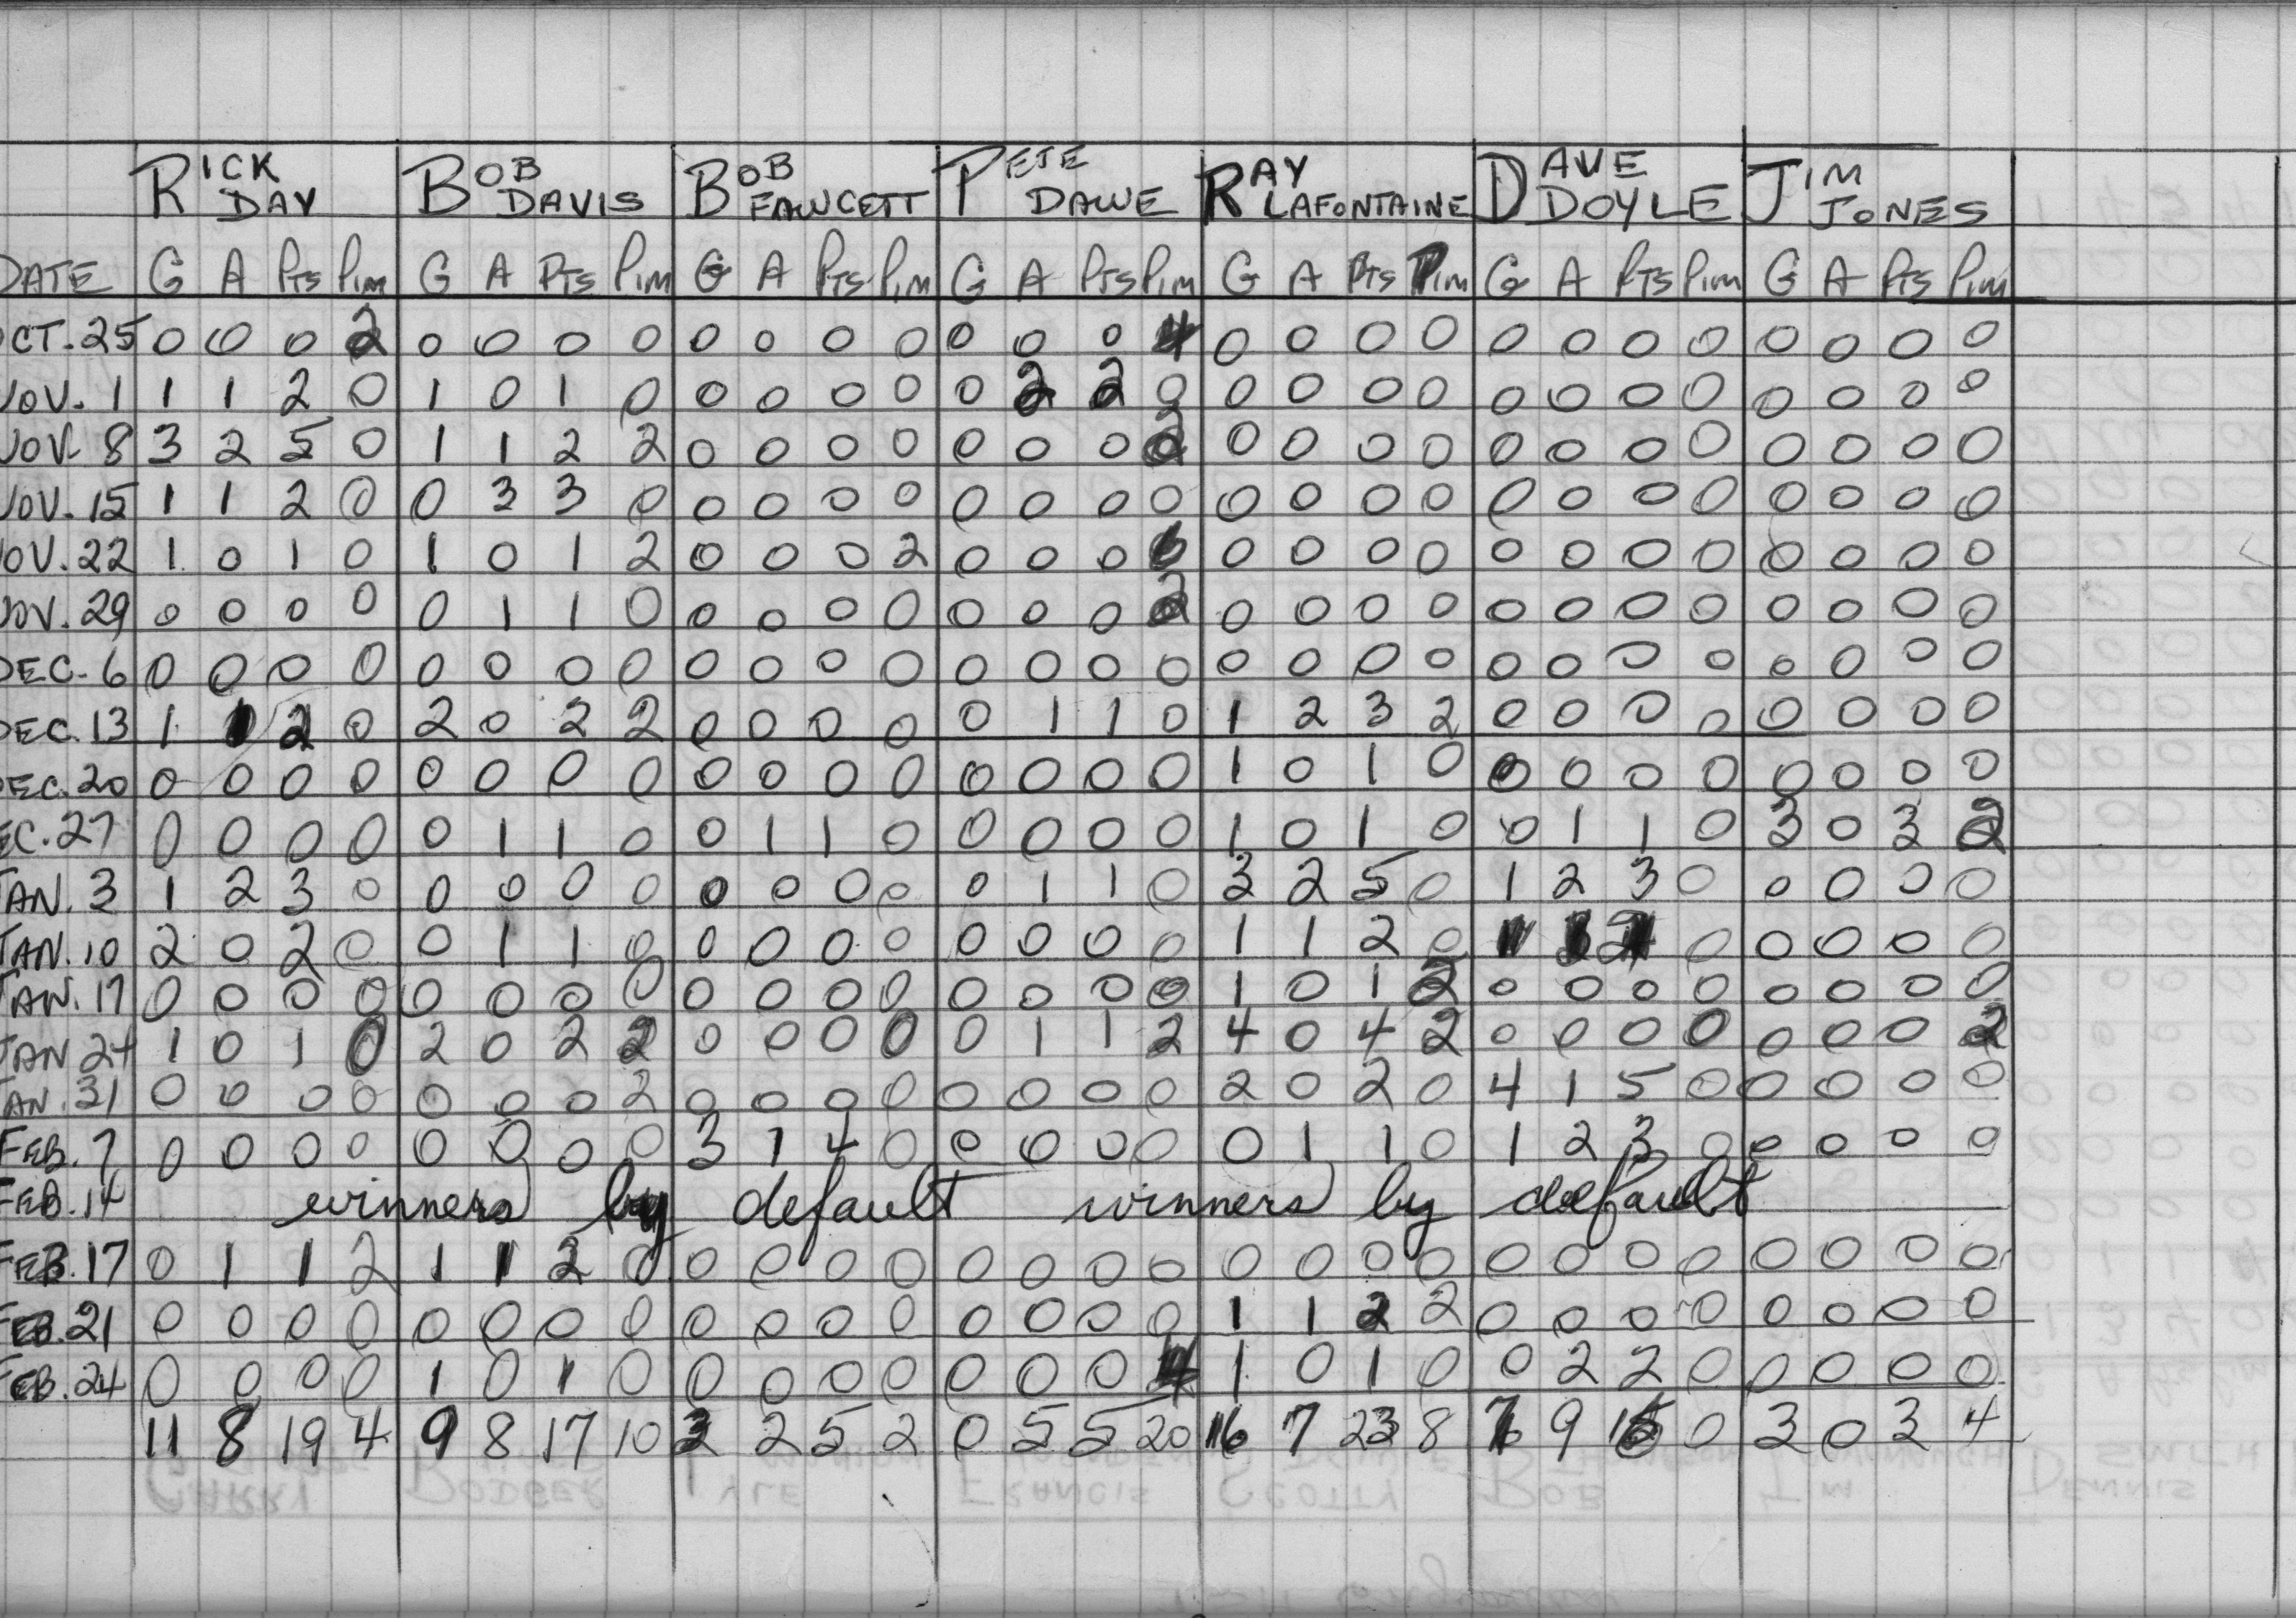 RICK DAY BOB DAVIS BOB FAWCETT PETE DAWE RAY LAFONTAINE DAVE DOYLE JIM JONES
DATE G A PTS PIM G A PTS PIM G A PTS PIM G A PTS PIM G A PTS PIM G A PTS PIM G A PTS PIM
OCT. 25 0 0 0 2 0 0 0 0 0 0 0 0 0 0 0 4 0 0 0 0 0 0 0 0 0 0 0 0
NOV. 1 1 1 2 0 1 0 1 0 0 0 0 0 0 2 2 0 0 0 0 0 0 0 0 0 0 0 0 0
NOV. 8 3 2 5 0 1 1 2 2 0 0 0 0 0 0 0 2 0 0 0 0 0 0 0 0 0 0 0 0
NOV. 15 1 1 2 0 0 3 3 0 0 0 0 0 0 0 0 0 0 0 0 0 0 0 0 0 0 0 0 0
NOV. 22 1 0 1 0 1 0 1 2 0 0 0 2 0 0 0 6 0 0 0 0 0 0 0 0 0 0 0 0
NOV. 29 0 0 0 0 0 1 1 0 0 0 0 0 0 0 0 2 0 0 0 0 0 0 0 0 0 0 0 0
DEC. 6 0 0 0 0 0 0 0 0 0 0 0 0 0 0 0 0 0 0 0 0 0 0 0 0 0 0 0 0
DEC. 13 1 1 2 0 2 0 2 2 0 0 0 0 0 1 1 0 1 2 3 2 0 0 0 0 0 0 0 0
DEC. 20 0 0 0 0 0 0 0 0 0 0 0 0 0 0 0 0 1 0 1 0 0 0 0 0 0 0 0 0
EC. 27 0 0 0 0 0 1 1 0 0 1 1 0 0 0 0 0 1 0 1 0 0 1 1 0 3 0 3 2
JAN. 3 1 2 3 0 0 0 0 0 0 0 0 0 0 1 1 0 3 2 5 0 1 2 3 0 0 0 0 0
JAN. 10 2 0 2 0 0 1 1 0 0 0 0 0 0 0 0 0 1 1 2 0 0 0 0 0 0
JAN. 17 0 0 0 0 0 0 0 0 0 0 0 0 0 0 0 0 1 0 1 2 0 0 0 0 0 0 0 0
JAN 24 1 0 1 0 2 0 2 2 0 0 0 0 0 1 1 2 4 0 4 2 0 0 0 0 0 0 0 2
JAN. 31 0 0 0 0 0 0 0 2 0 0 0 0 0 0 0 0 2 0 2 0 4 1 5 0 0 0 0 0
FEB. 7 0 0 0 0 0 0 0 0 3 1 4 0 0 0 0 0 0 1 1 0 1 2 3 0 0 0 0 0
FEB. 14 winners by default winners by default
FEB. 17 0 1 1 2 1 1 2 0 0 0 0 0 0 0 0 0 0 0 0 0 0 0 0 0 0 0 0 0
FEB. 21 0 0 0 0 0 0 0 0 0 0 0 0 0 0 0 0 1 1 2 2 0 0 0 0 0 0 0 0
FEB. 24 0 0 0 0 1 0 1 0 0 0 0 0 0 0 0 4 1 0 1 0 0 2 2 0 0 0 0 0
11 8 19 4 9 8 17 10 3 2 5 2 0 5 5 20 16 7 23 8 9 0 3 0 3 4